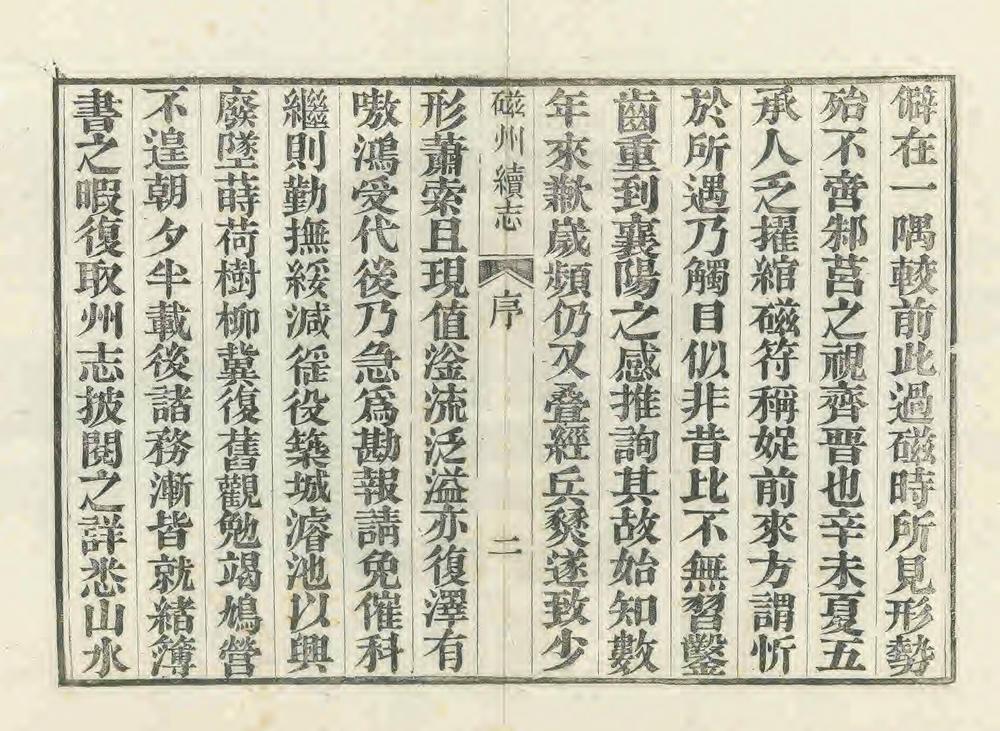 僻在一隅較前此過磁時所見形勢
殆不啻邾莒之視齊晋也辛未夏五
承人乏擢綰磁符稱娖前來方謂忻
於所遇乃觸目似非昔比不無習鑿
齒重到襄陽之感推詢其故始知數
年來歉歲頻仍又疊經兵燹遂致少
磁州續志
序
二
形蕭索且現值滏流泛溢亦復澤有
嗷鴻受代後乃急爲勘報請免催科
繼則勤撫綏減徭役築城濬池以興
廢墜蒔荷樹柳冀復舊觀勉竭鳩營
不遑朝夕半載後諸務漸皆就緒簿
書之暇復取州志披閱之詳悉山水